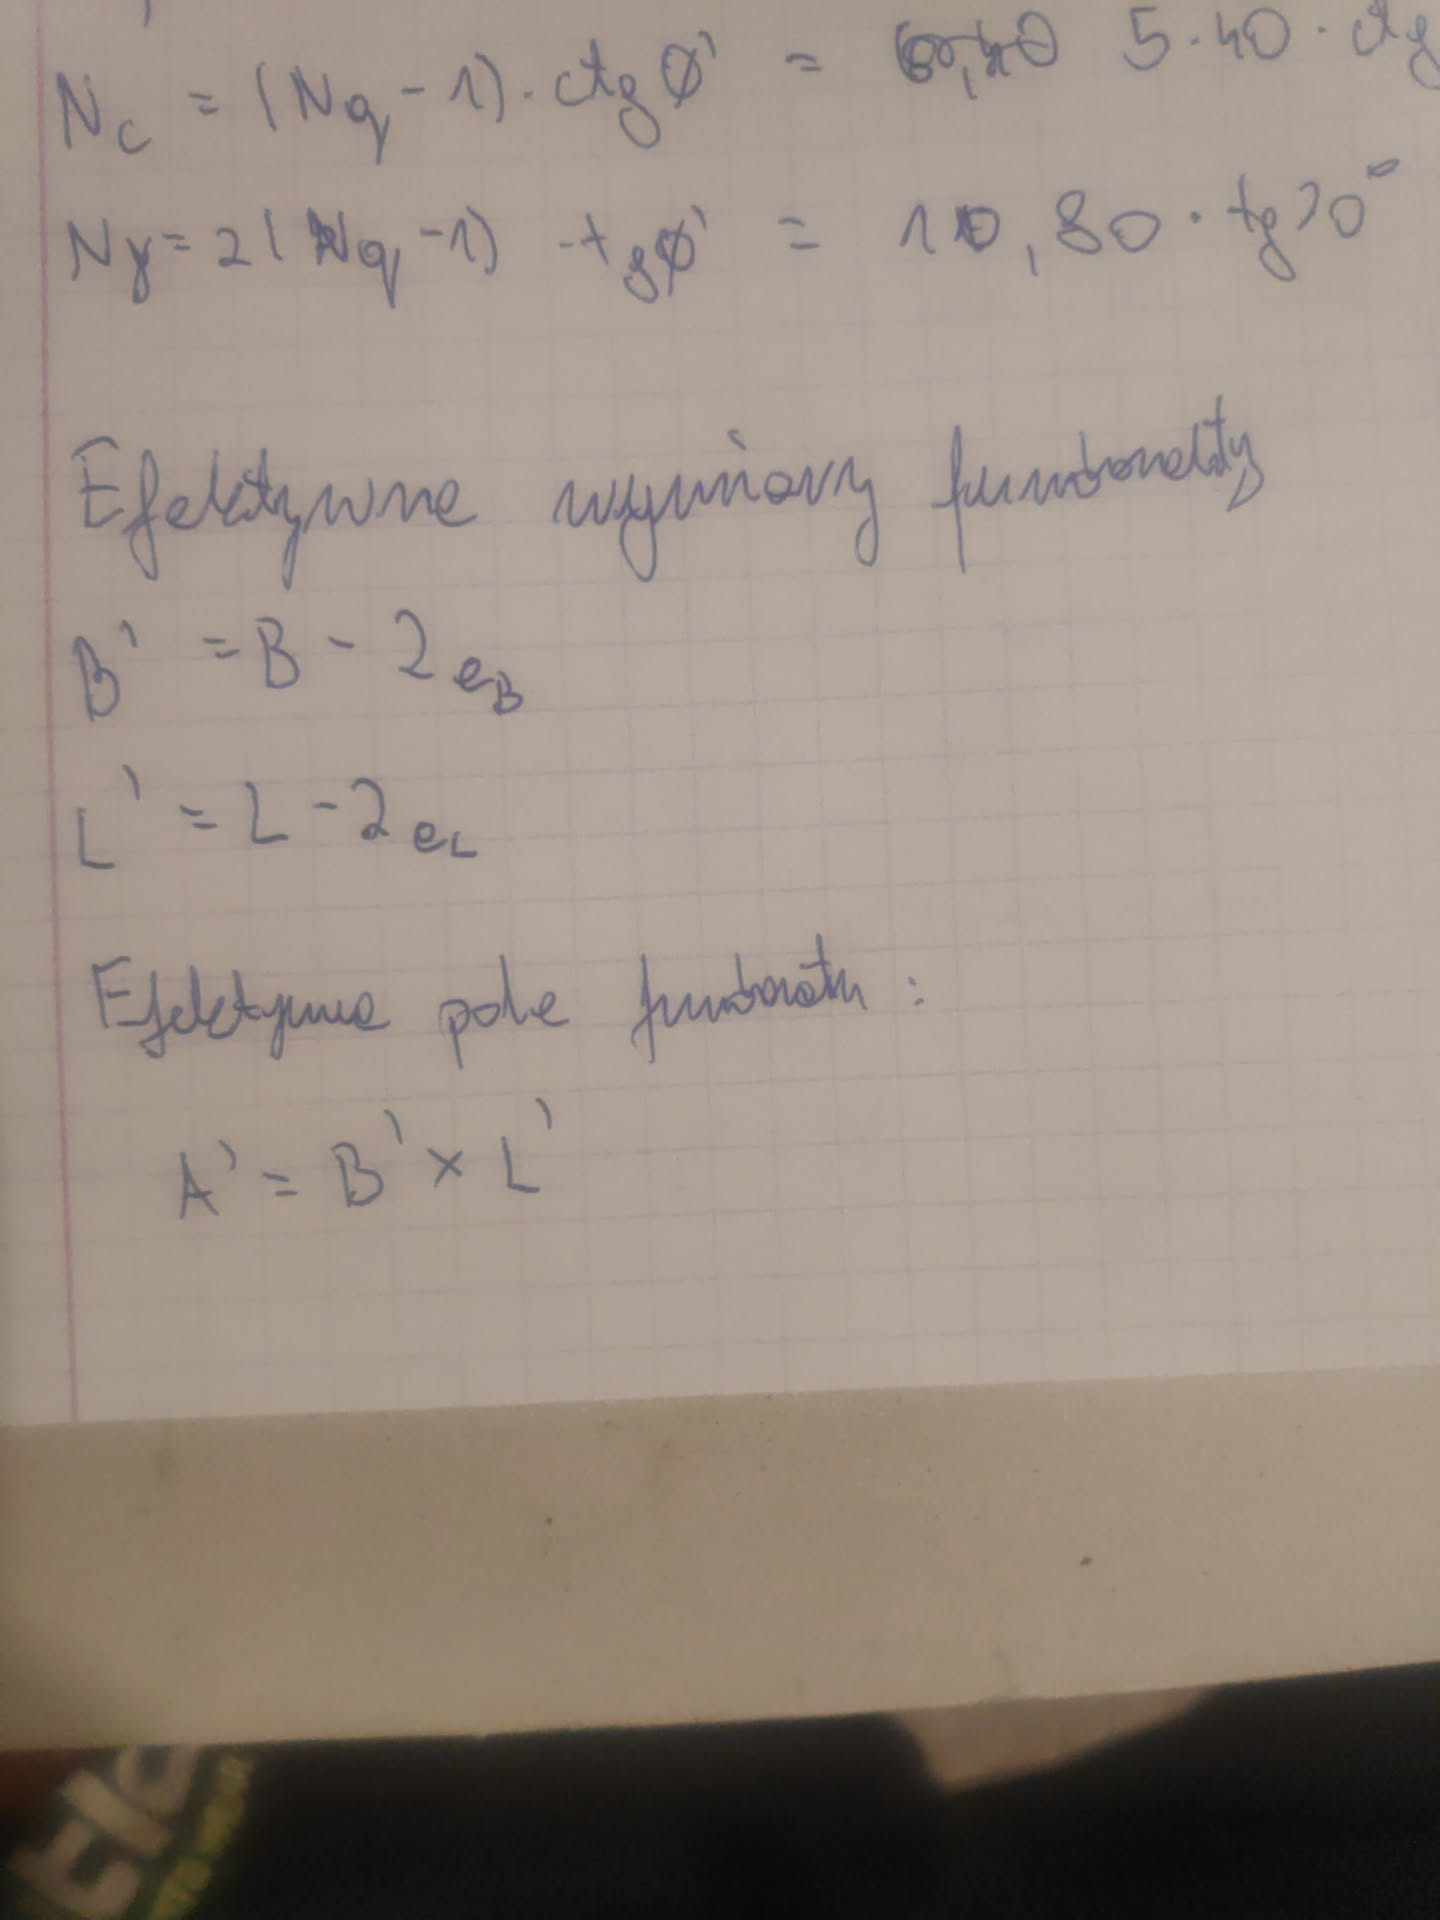 Nc = (Nq - 1) · ctg ø' = 5.40 · ctg
Nγ = 2(Nq - 1) · tg ø' = 10,80 · tg 20°
Efektywne wymiary fundamentu
B' = B - 2eB
L' = L - 2eL
Efektywne pole fundamentu :
A' = B' × L'
Ela